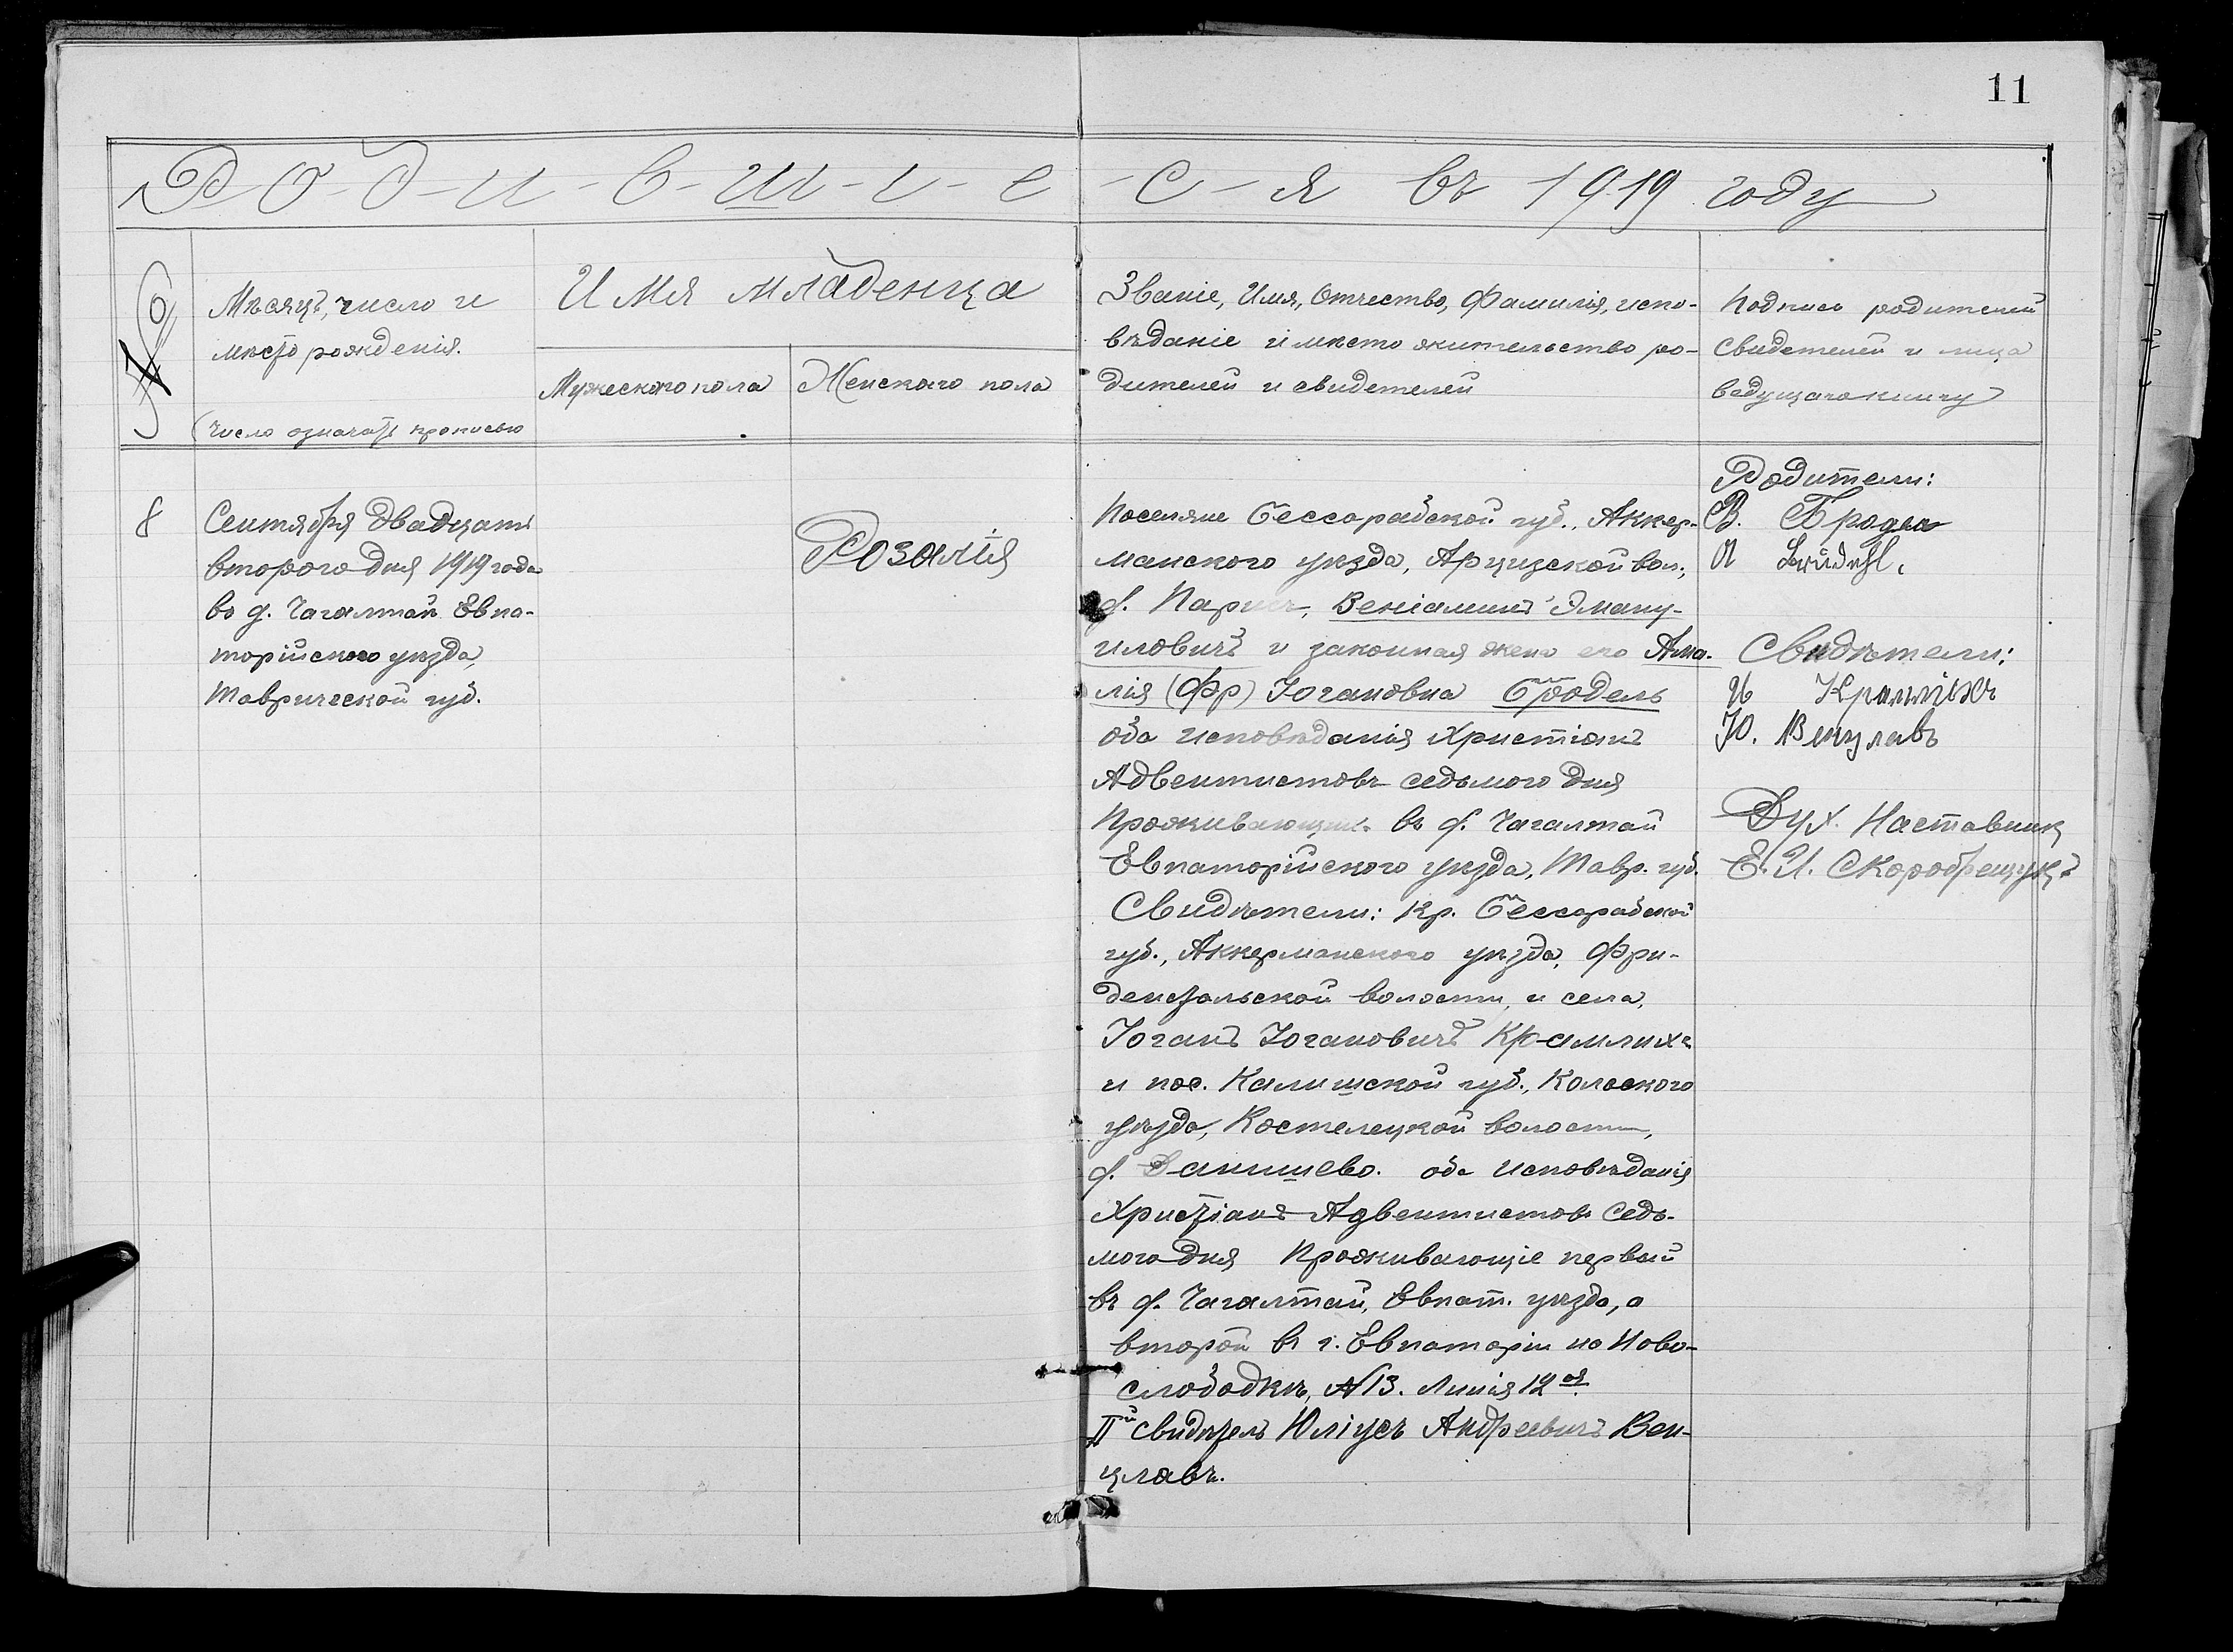 11
Р-о-д-и-в-ш-і-е-с-я въ 1919 году
№
Мѣсяцъ, число и
мѣсто рожденія.
(Число означать прописью
Имя младенца
Мужескаго пола
Женскаго пола
Званіе, Имя, Отчество, Фамилія, испо-
вѣданіе и мѣсто жительство ро-
дителей и свидетелей
Подпись родителей
Свидетелей и лица
ведущаго книгу
8
Сентября двадцать
второго дня 1919 года
въ д. Чагалтай Евпа-
торійского уѣзда,
Таврической губ.
Розалія
Поселяне Бессорабской губ., Аккер-
манского уѣзда, Арцизской вол.,
д. Парис, Веніаминъ Эману-
иловичъ и законная жена его Ама-
лія (Фр) Іогановна Бродель
оба исповѣданія Христіанъ
Адвентистовъ седьмого дня
Проживающих въ д. Чагалтай
Евпаторійского уѣзда, Тавр. губ.
Свидѣтели: Кр. Бессорабской
губ., Аккерманского уѣзда, Фри-
денстальской волости, и села,
Іоганъ Іогановичъ Крамлихъ
и пос. Калишской губ., Кольского
уѣзда, Костелецкой волости,
д. Данишево. оба исповѣданія
Христіанъ Адвентистовъ Седь-
мого дня Проживающіе первый
въ д. Чагалтай, Евпат. уѣзда, а
второй въ г. Евпаторіи на Ново-
слободкѣ, № 13. Линія 12ая.
IIй свидѣтель Юліусъ Андреевичъ Вен-
цлавъ.
Родители:
В. Бродел
А
Свидѣтели:
И Крамлихъ
Ю. Венцлавъ
Дух. Наставник
Е. И.